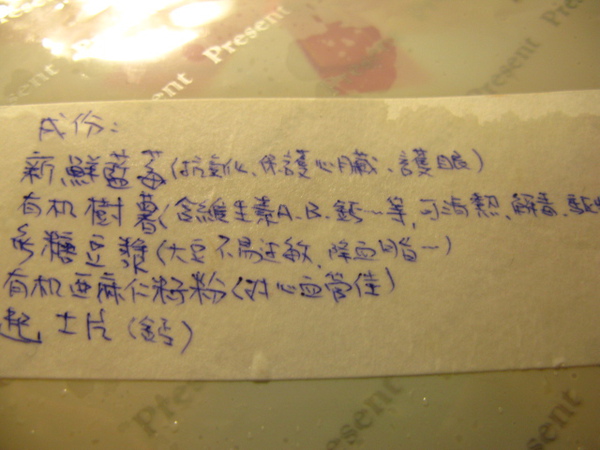 Present
Present
Present
成份:
新鮮藍莓(抗氧化、保護心臟、護眼)
有机樹薯(含維生素A、B、鈣…等,可清熱、解毒、
無糖豆漿(大豆不易過敏、降血脂…)
有机亞麻仁籽粉(對心血管佳)
起士片(鈣)
Present
Present